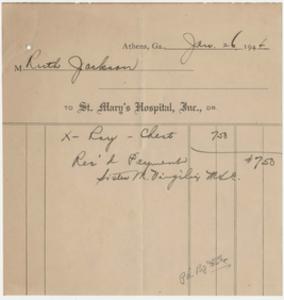 Athens, Ga. Jan. 26 194
M Ruth Jackson
TO St. Mary's Hospital, Inc., DR.
X-Ray - Chest 7.50
Rec'd Payment $7.50
Sister M.